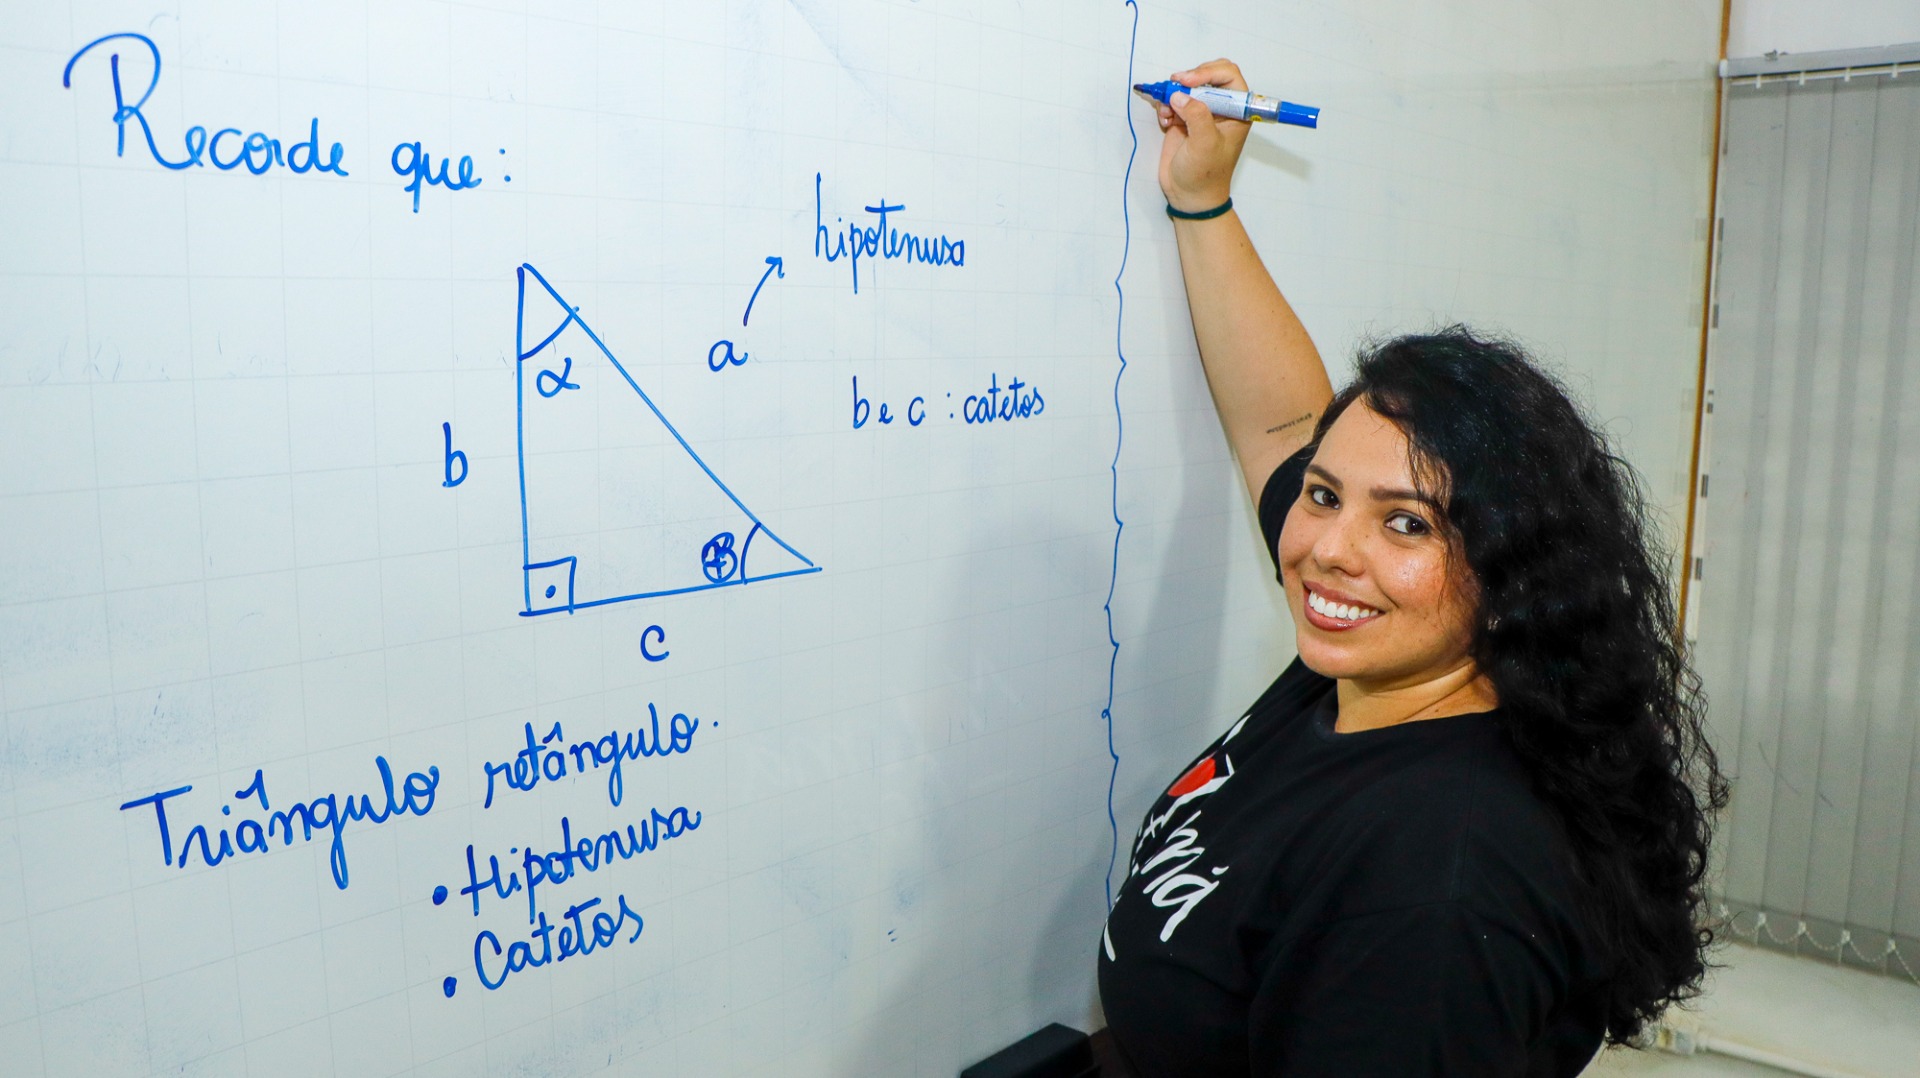 Recorde que:
hipotenusa
α
a
b e c : catetos
b
β
c
Triângulo retângulo.
• Hipotenusa
• Catetos